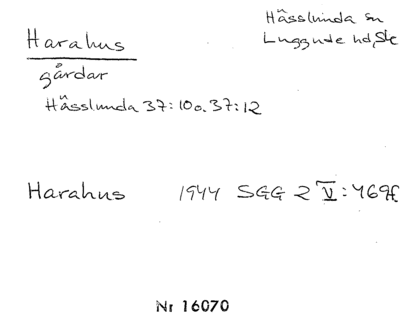 Harahus
Hässlunda sn
Luggude hd, Sk
gårdar
Hässlunda 37:10 o. 37:12
Harahus 1944 SGG 2 V:469f
Nr 16070